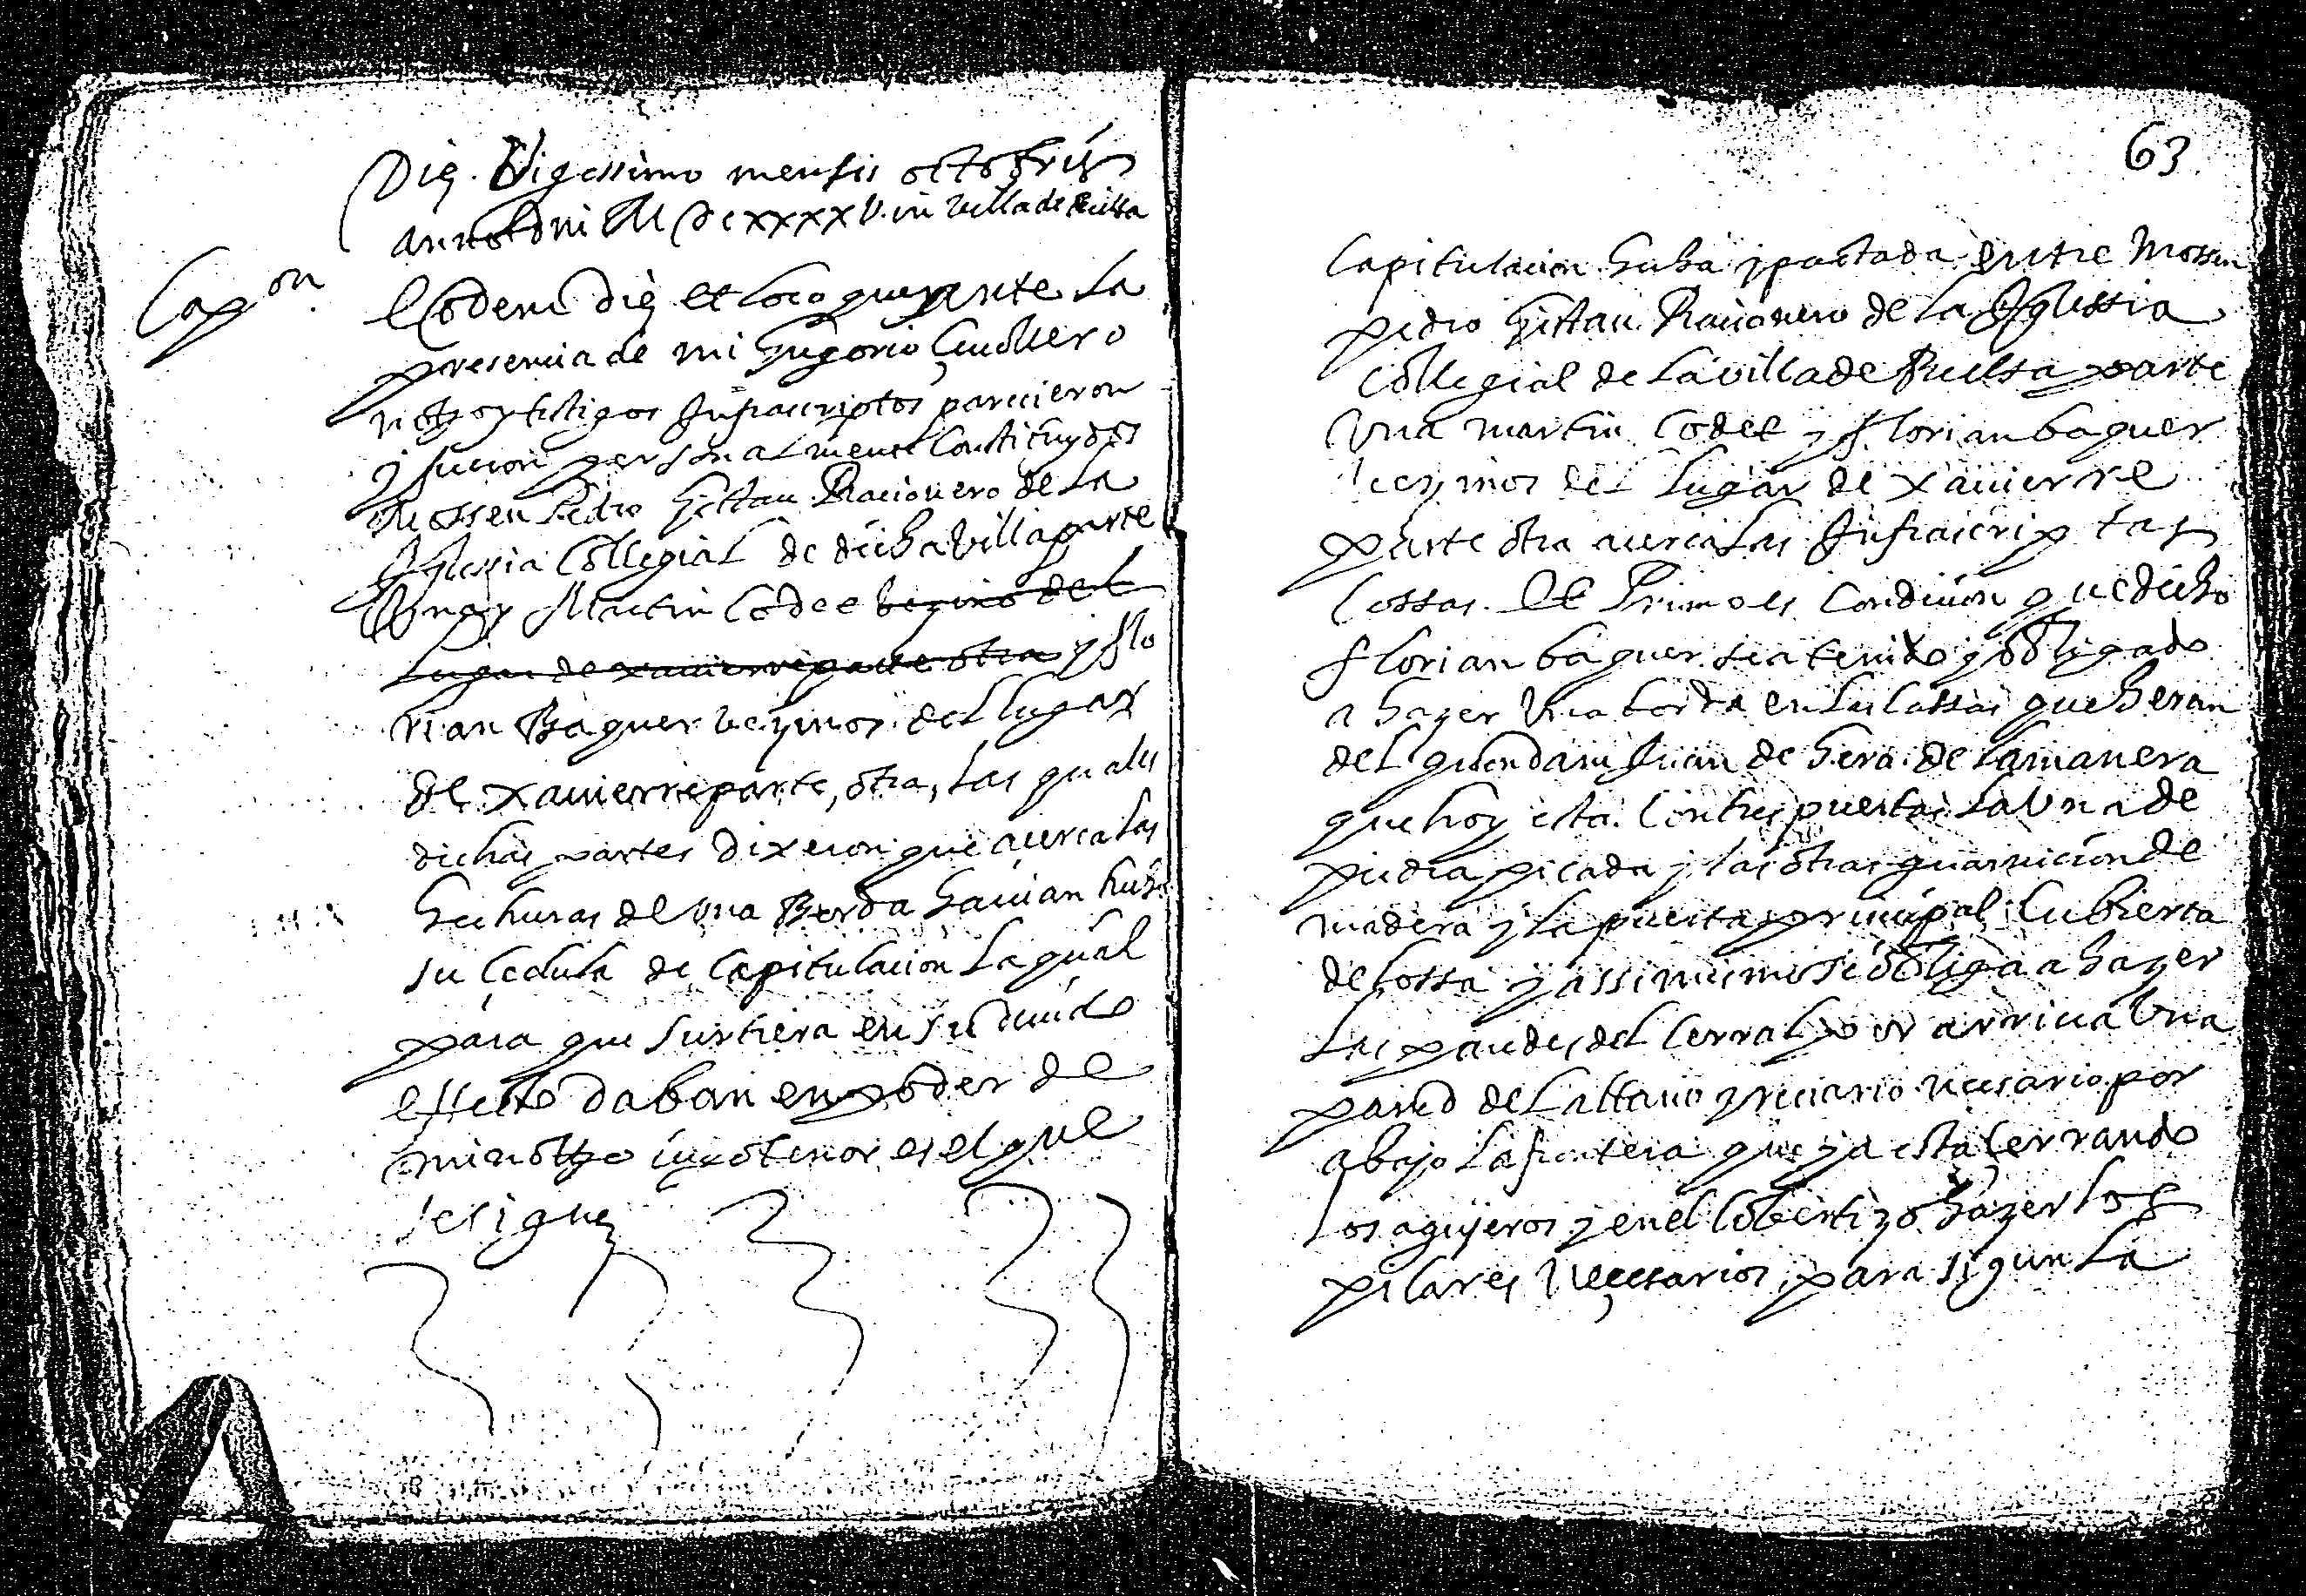 Die Vigessimo mensis octobris
anno Dni M DCxxxxV. in villa de Bielsa
Capon.
Eodem die et loco que ante la
presencia de mi Gregorio
noto y testigos Infrascriptos parecieron
y fueron personalmente Constituydos
Mossen Pedro Racionero de La
Yglessia Collegial de dicha Villa parte
Una y Martin Codee bezino del
Lugar de xauierre parte otra y flo
rian Baguer vezinos del lugar
de xauierre parte, otra, Las quales
dichas partes dixeron que acerca las
hechuras de una Borda hauian
su Cedula de Capitulacion La qual
para que surtiera en su deuido
effecto daban en poder de
mi notto cuyo tenor es el que
se sigue
63
Capitulacion y pactada entre Mossen
pedro Racionero de La Yglessia
Collegial de La villa de Bielssa parte
Una martin Codee y florian baguer
vezinos del Lugar de xauierre
parte otra acerca Las Infrascriptas
Cossas. Et Primo es Condicion que dicho
florian baguer sea tenido y obligado
a hazer Una borda en Las Cassas que heran
del quondam Juan de de La manera
que hoy esta. Con tres puertas La Una de
piedra picada y las otras guarnicion de
madera y La puerta principal Cubierta
de Lossa y assi mismo se obliga a hazer
Las paredes del Cerral por arriua Una
pared de necesario por
abajo La frontera que ya esta Cerrando
Los agujeros y en el Cobertizo hazer los
pilares Neçesarios para sigun La